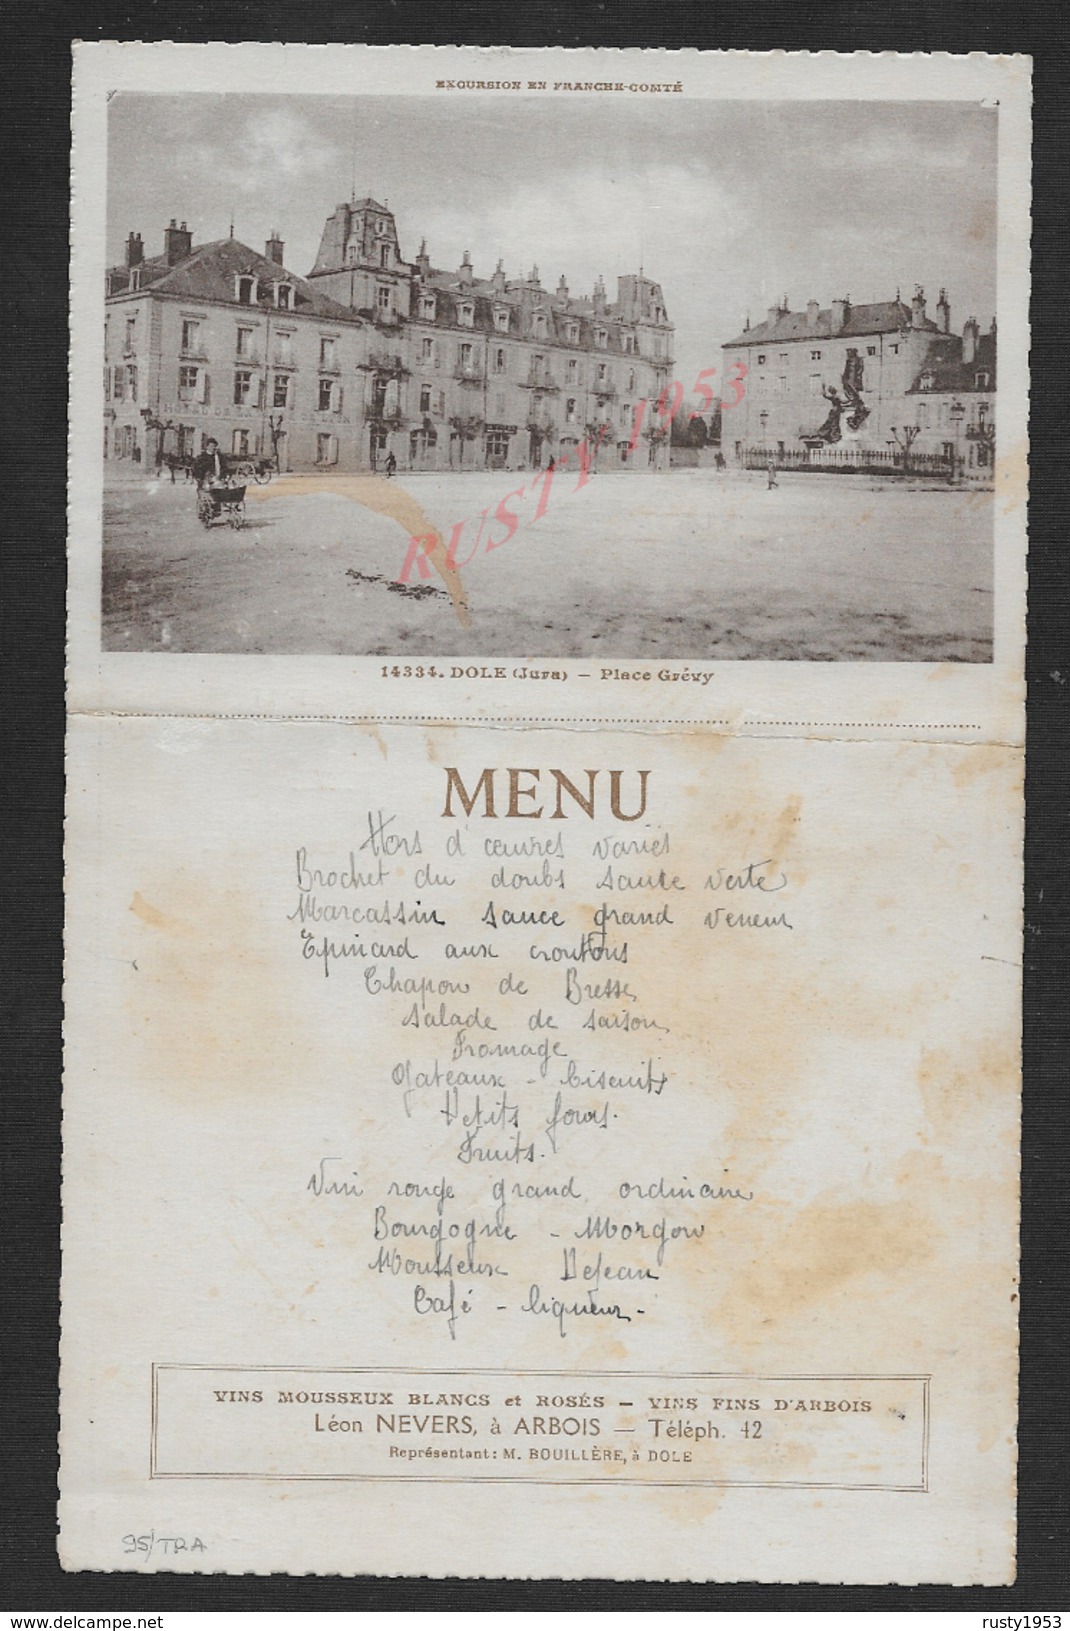 EXCURSION EN FRANCHE-COMTÉ
HOTEL DE
RUSTY 1953
14334. DOLE (Jura) — Place Grévy
MENU
Hors d'œuvres variés
Brochet du doubs sauce verte
Marcassin sauce grand veneur
Epinard aux croutons
Chapon de Bresse
Salade de saison
Fromage
Gateaux - biscuits
Petits fours.
Fruits.
Vin rouge grand ordinaire
Bourgogne - Morgon
Mousseux Dejean
Café - liqueur -
VINS MOUSSEUX BLANCS et ROSÉS — VINS FINS D'ARBOIS
Léon NEVERS, à ARBOIS — Téléph. 42
Représentant : M. BOUILLÈRE, à DOLE
95/TRA
www.delcampe.net
rusty1953